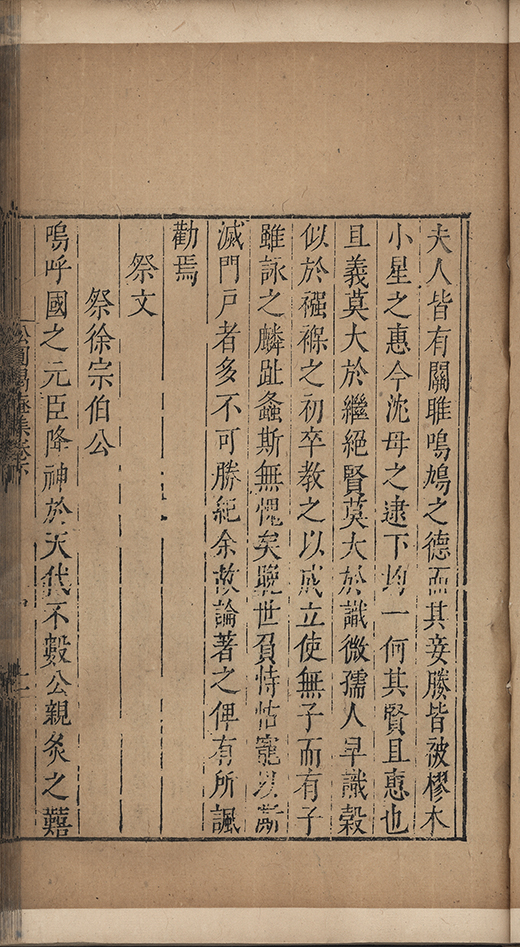 夫人皆有關雎鳴鳩之德而其妾媵皆被樛木
小星之惠今沈母之逮下均一何其賢且惠也
且義莫大於繼絕賢莫大於識微孺人早識穀
似於襁褓之初卒教之以成立使無子而有子
雖詠之麟趾螽斯無愧矣晚世負恃怙寵以斯
滅門戶者多不可勝紀余故論著之俾有所諷
勸焉
祭文
祭徐宗伯公
嗚呼國之元臣降神於天代不數公親炙之囏
松圓偈庵集卷下